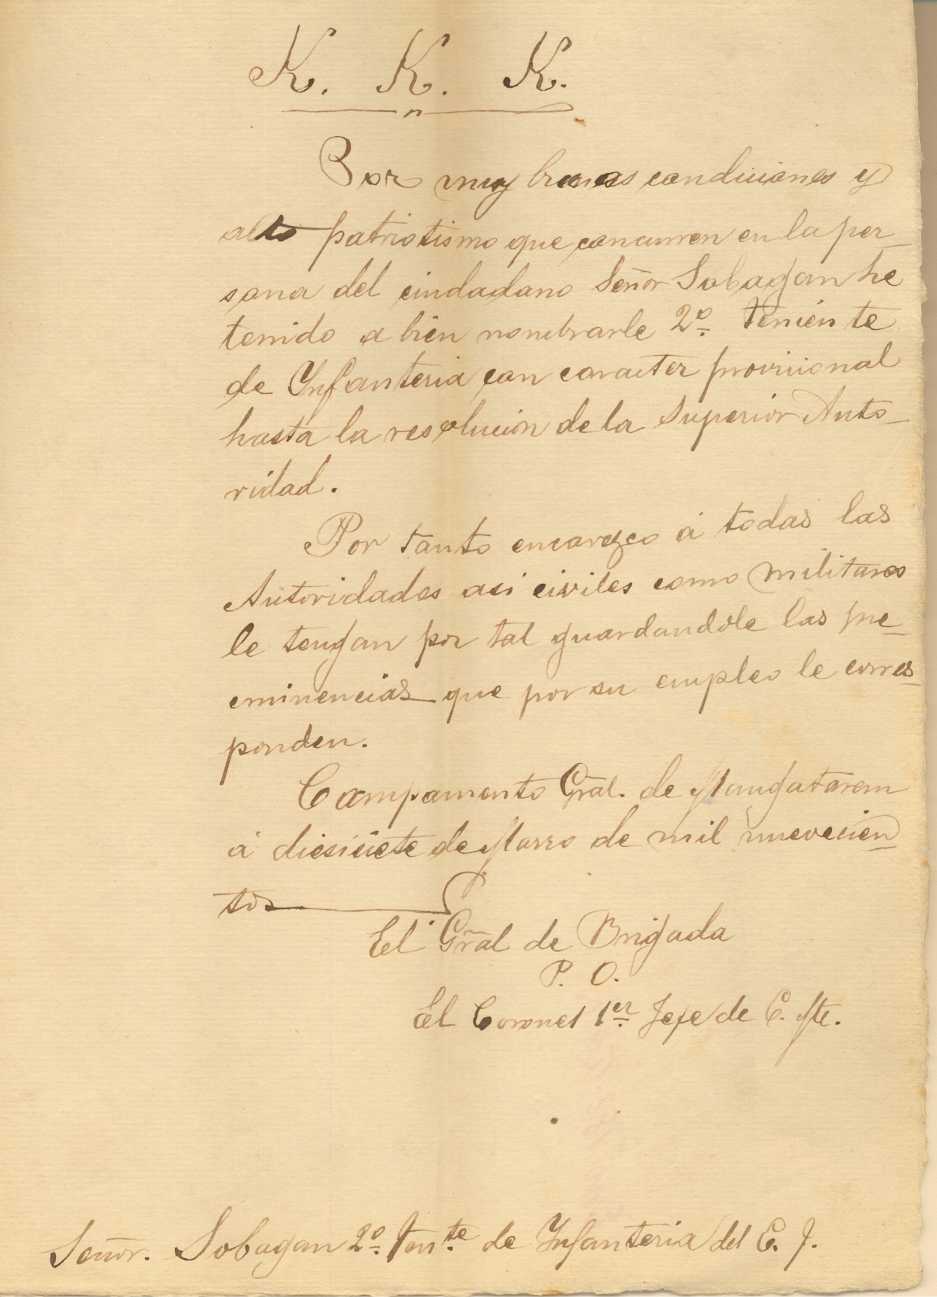 K. K. K.
Por muy buenas condiciones y
alto patriotismo que concurren en la per-
sona del ciudadano Señor Sobagan he
tenido a bien nombrarle 2º Teniente
de Ynfanteria con caracter provicional
hasta la resolucion de la Superior Auto-
ridad.
Por tanto encarezco á todas las
Autoridades asi civiles como militares
le tengan por tal guardandole las pre-
eminencias que por su empleo le corres-
ponden.
Campamento Gral. de Mangatarem
á diesisiete de Marzo de mil nuevecien-
tos
El Gral de Brigada
P. O.
El Coronel 1er Jefe de E.
Señor. Sobagan 2º Tente de Ynfanteria del E. J.